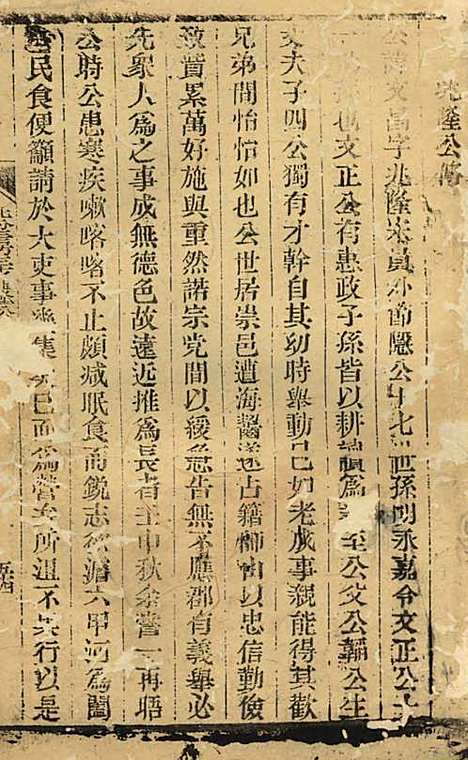 兆隆公傳
公諱文 字兆隆宋員外節愍公十九世孫明永嘉令文正公
也文正公有惠政子孫皆以耕讀爲 至公父公 公生
丈夫子四公獨有才幹自其幼時舉動已如老成事親能得其歡
兄弟間怡怡如也公世居崇邑遭海 遂占籍 以忠信勤儉
致貲累萬好施與重然諾宗党間以緩急告無不應郡有義舉必
先衆人爲之事成無德色故遠近推爲長者壬申秋余嘗一再晤
公時公患寒疾嗽咯咯不止頗减眠食而鋭志 六甲河爲闔
邑民食便籲請於大吏事 集 已而爲 所沮不 行以是
五四